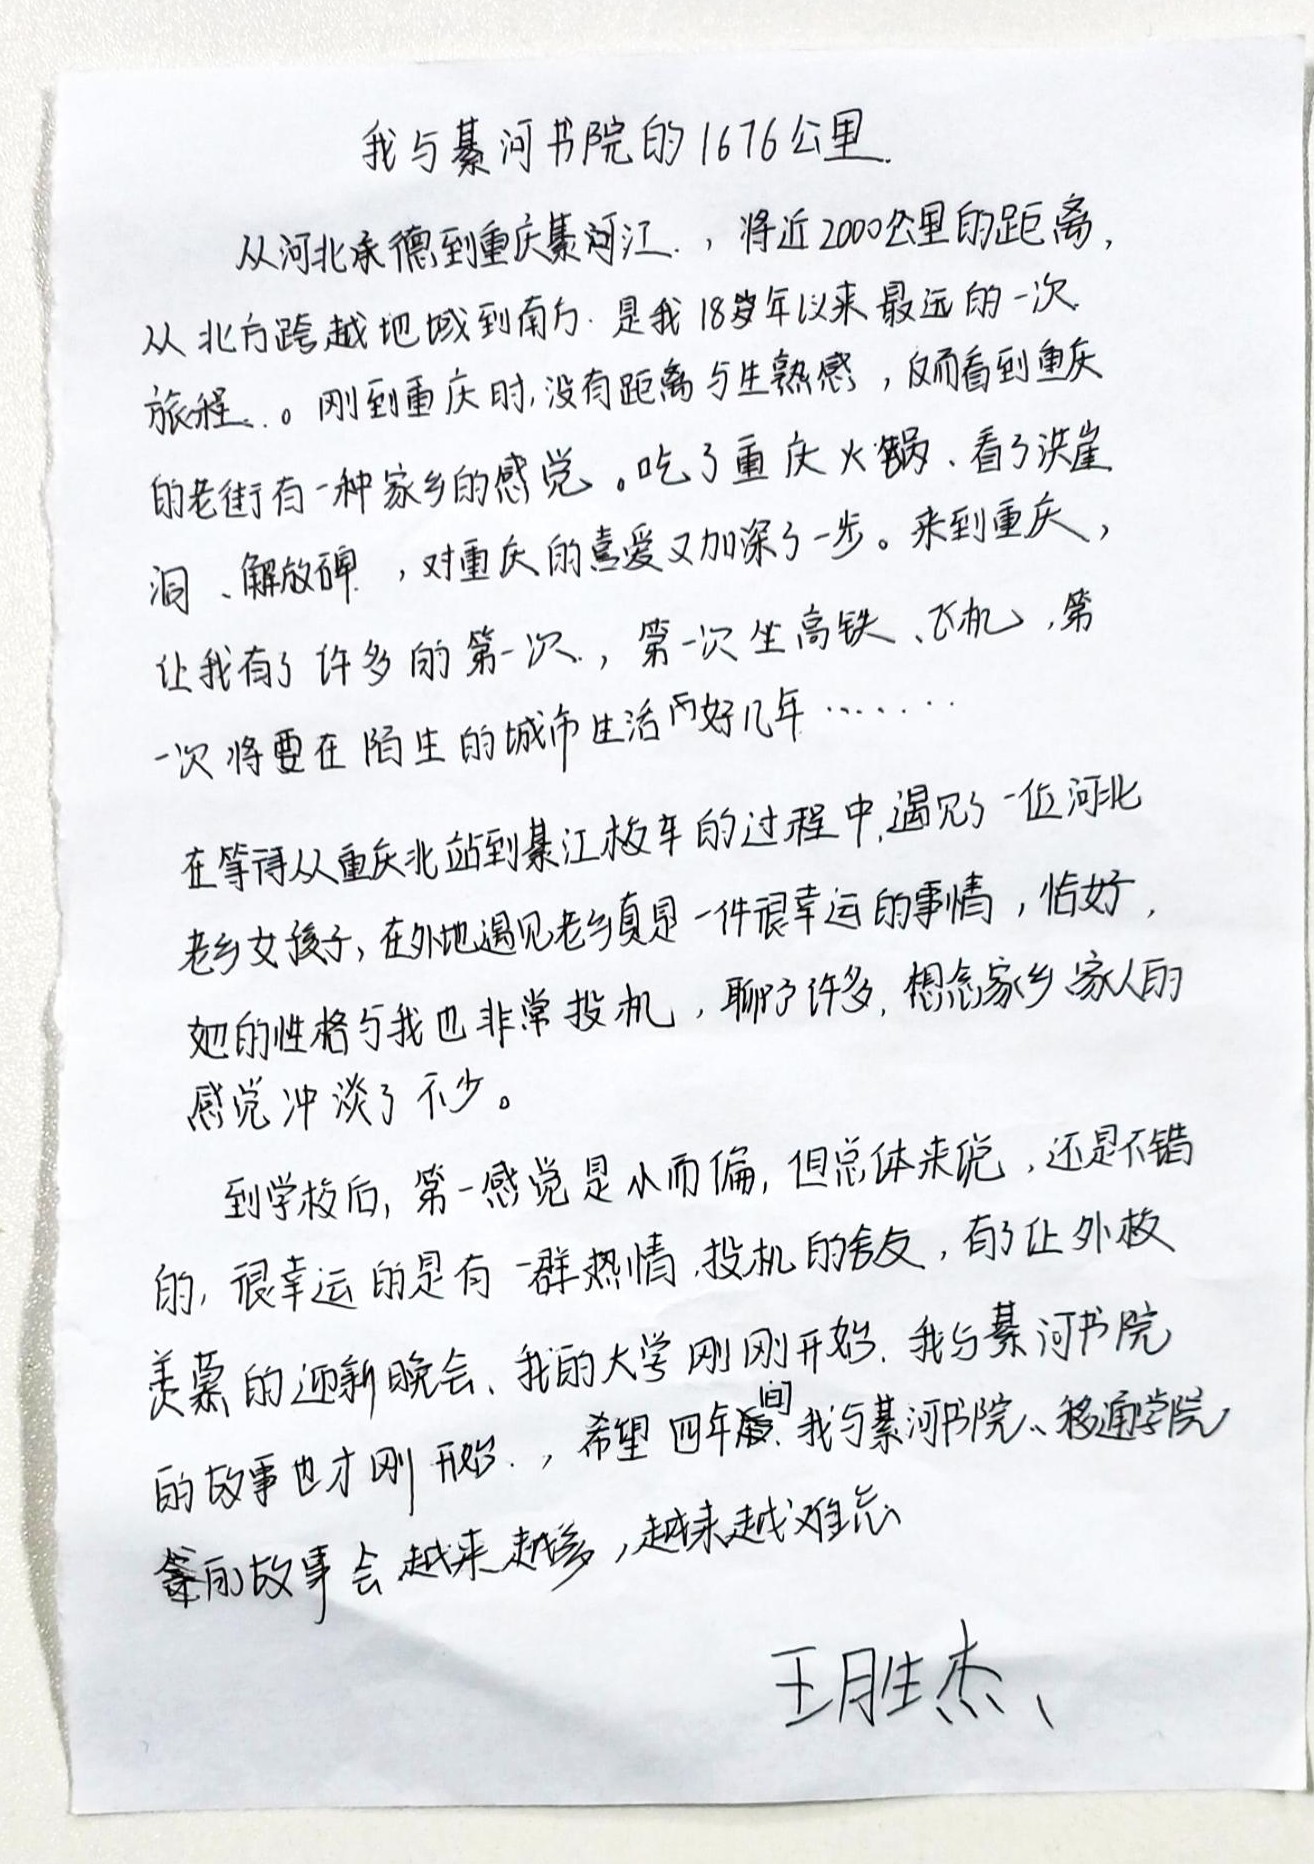 我与綦河书院的1676公里.
从河北承德到重庆綦河江.，将近2000公里的距离，
从北方跨越地域到南方.是我18岁年以来最远的一次
旅程.。刚到重庆时,没有距离与生熟感，反而看到重庆
的老街有一种家乡的感觉。吃了重庆火锅、看了洪崖
洞、解放碑，对重庆的喜爱又加深了一步。来到重庆，
让我有了许多的第一次.，第一次坐高铁、飞机，第
一次将要在陌生的城市生活好几年·······
在等待从重庆北站到綦江校车的过程中,遇见了一位河北
老乡女孩子,在外地遇见老乡真是一件很幸运的事情，恰好，
她的性格与我也非常投机，聊了许多,想念家乡、家人的
感觉冲淡了不少。
到学校后,第一感觉是小而偏,但总体来说，还是不错
的,很幸运的是有一群热情、投机的舍友，有了让外校
羡慕的迎新晚会、我的大学刚刚开始.我与綦河书院
的故事也才刚开始.，希望四年间.我与綦河书院、移通学院
的故事会越来越多，越来越难忘
王胜杰、